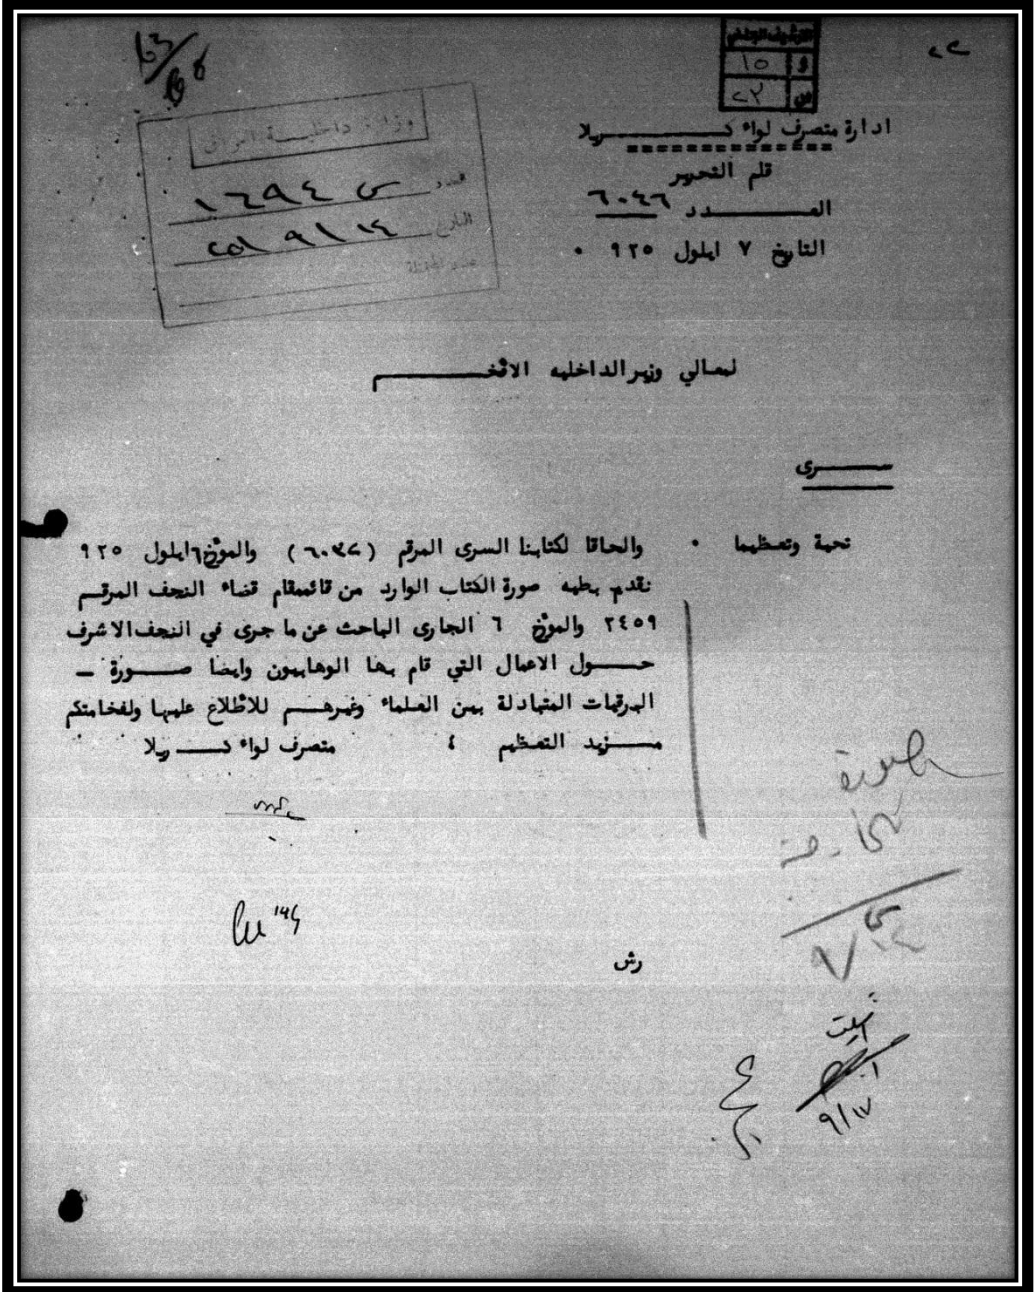 ٢٢
و ١٥
ص ٢٣
وزارة داخلية العراق
عدد س ١٦٩٤
التاريخ ٩/١٤
ادارة متصرف لواء كـــربلا
قلم التحرير
العـــدد ٦٠٤٦
التاريخ ٧ ايلول ٩٢٥ ٠
لمعالي وزير الداخليه الافخـــم
ســـرى
تحية وتعظيما ٠ والحاقا لكتابنا السرى المرقم (٦٠٣٧) والمؤرخ ٦ ايلول ٩٢٥
نقدم بطيه صورة الكتاب الوارد من قائممقام قضاء النجف المرقـم
٢٤٥٩ والمؤرخ ٦ الجارى الباحث عن ما جرى في النجف الاشرف
حـــول الاعمال التي قام بها الوهابيون وايضا صـــورة ــ
البرقيات المتبادلة بين العلماء وغيرهـــم للاطلاع عليها ولفخامتكم
مـــزيد التعظيم ٤ متصرف لواء كـــربلا
صورة
رش
٩/١٧